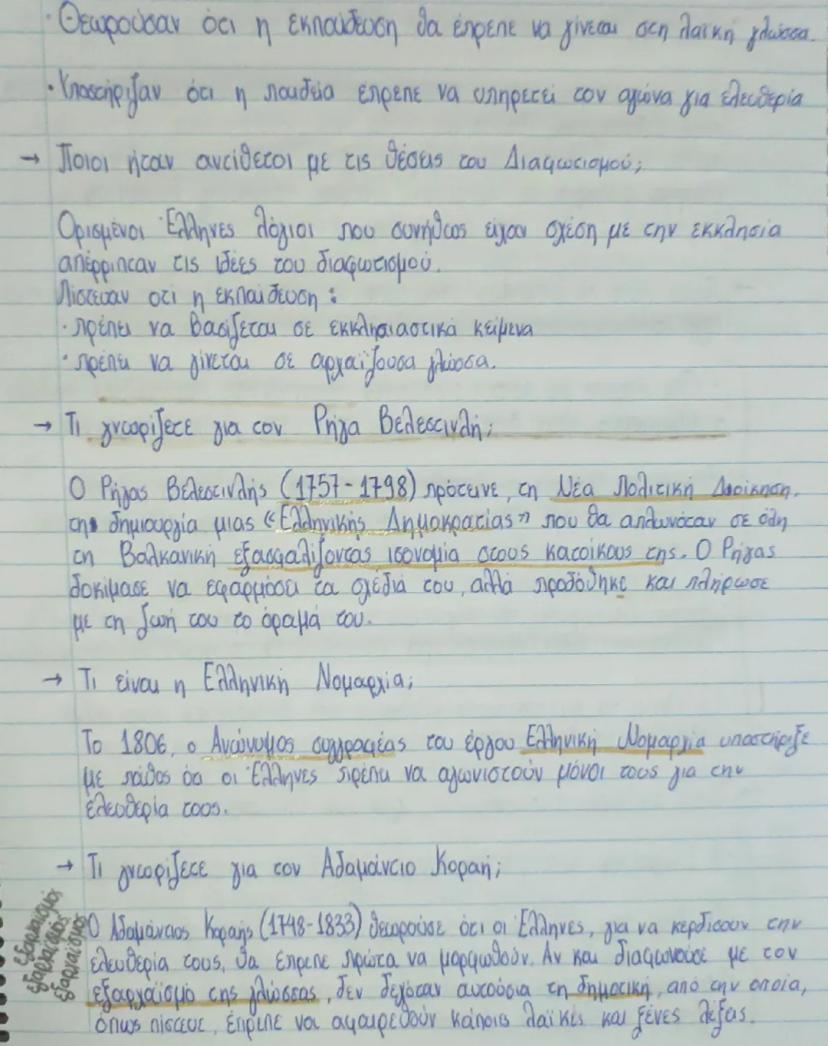 · Θεωρούσαν ότι η εκπαίδευση θα έπρεπε να γίνεται στη λαϊκή γλώσσα.
· Υποστήριζαν ότι η παιδεία έπρεπε να υπηρετεί τον αγώνα για ελευθερία
→ Ποιοι ήταν αντίθετοι με τις θέσεις του Διαφωτισμού;
Ορισμένοι Έλληνες λόγιοι που συνήθως είχαν σχέση με την εκκλησία
απέρριπταν τις ιδέες του διαφωτισμού.
Πίστευαν οτι η εκπαίδευση :
· πρέπει να βασίζεται σε εκκλησιαστικά κείμενα
· πρέπει να γίνεται σε αρχαΐζουσα γλώσσα.
→ Τι γνωρίζετε για τον Ρήγα Βελεστινλή;
Ο Ρήγας Βελεστινλής (1757-1798) πρότεινε, τη Νέα Πολιτική Διοίκηση,
τη δημιουργία μιας «Ελληνικής Δημοκρατίας» που θα απλωνόταν σε όλη
τη Βαλκανική εξασφαλίζοντας ισονομία στους κατοίκους της. Ο Ρήγας
δοκίμασε να εφαρμόσει τα σχέδιά του, αλλά προδόθηκε και πλήρωσε
με τη ζωή του το όραμά του.
→ Τι είναι η Ελληνική Νομαρχία;
Το 1806, ο Ανώνυμος συγγραφέας του έργου Ελληνική Νομαρχία υποστήριξε
με πάθος ότι οι Έλληνες πρέπει να αγωνιστούν μόνοι τους για την
ελευθερία τους.
→ Τι γνωρίζετε για τον Αδαμάντιο Κοραή;
Ο Αδαμάντιος Κοραής (1748-1833) θεωρούσε ότι οι Έλληνες, για να κερδίσουν την
ελευθερία τους, θα έπρεπε πρώτα να μορφωθούν. Αν και διαφωνούσε με τον
εξαρχαϊσμό της γλώσσας, δεν δεχόταν αυτούσια τη δημοτική, από την οποία,
όπως πίστευε, έπρεπε να αφαιρεθούν κάποιες λαϊκές και ξένες λέξεις.
εξαρχαϊσμός
εξαρχαϊσμός
εξαρχαϊσμός